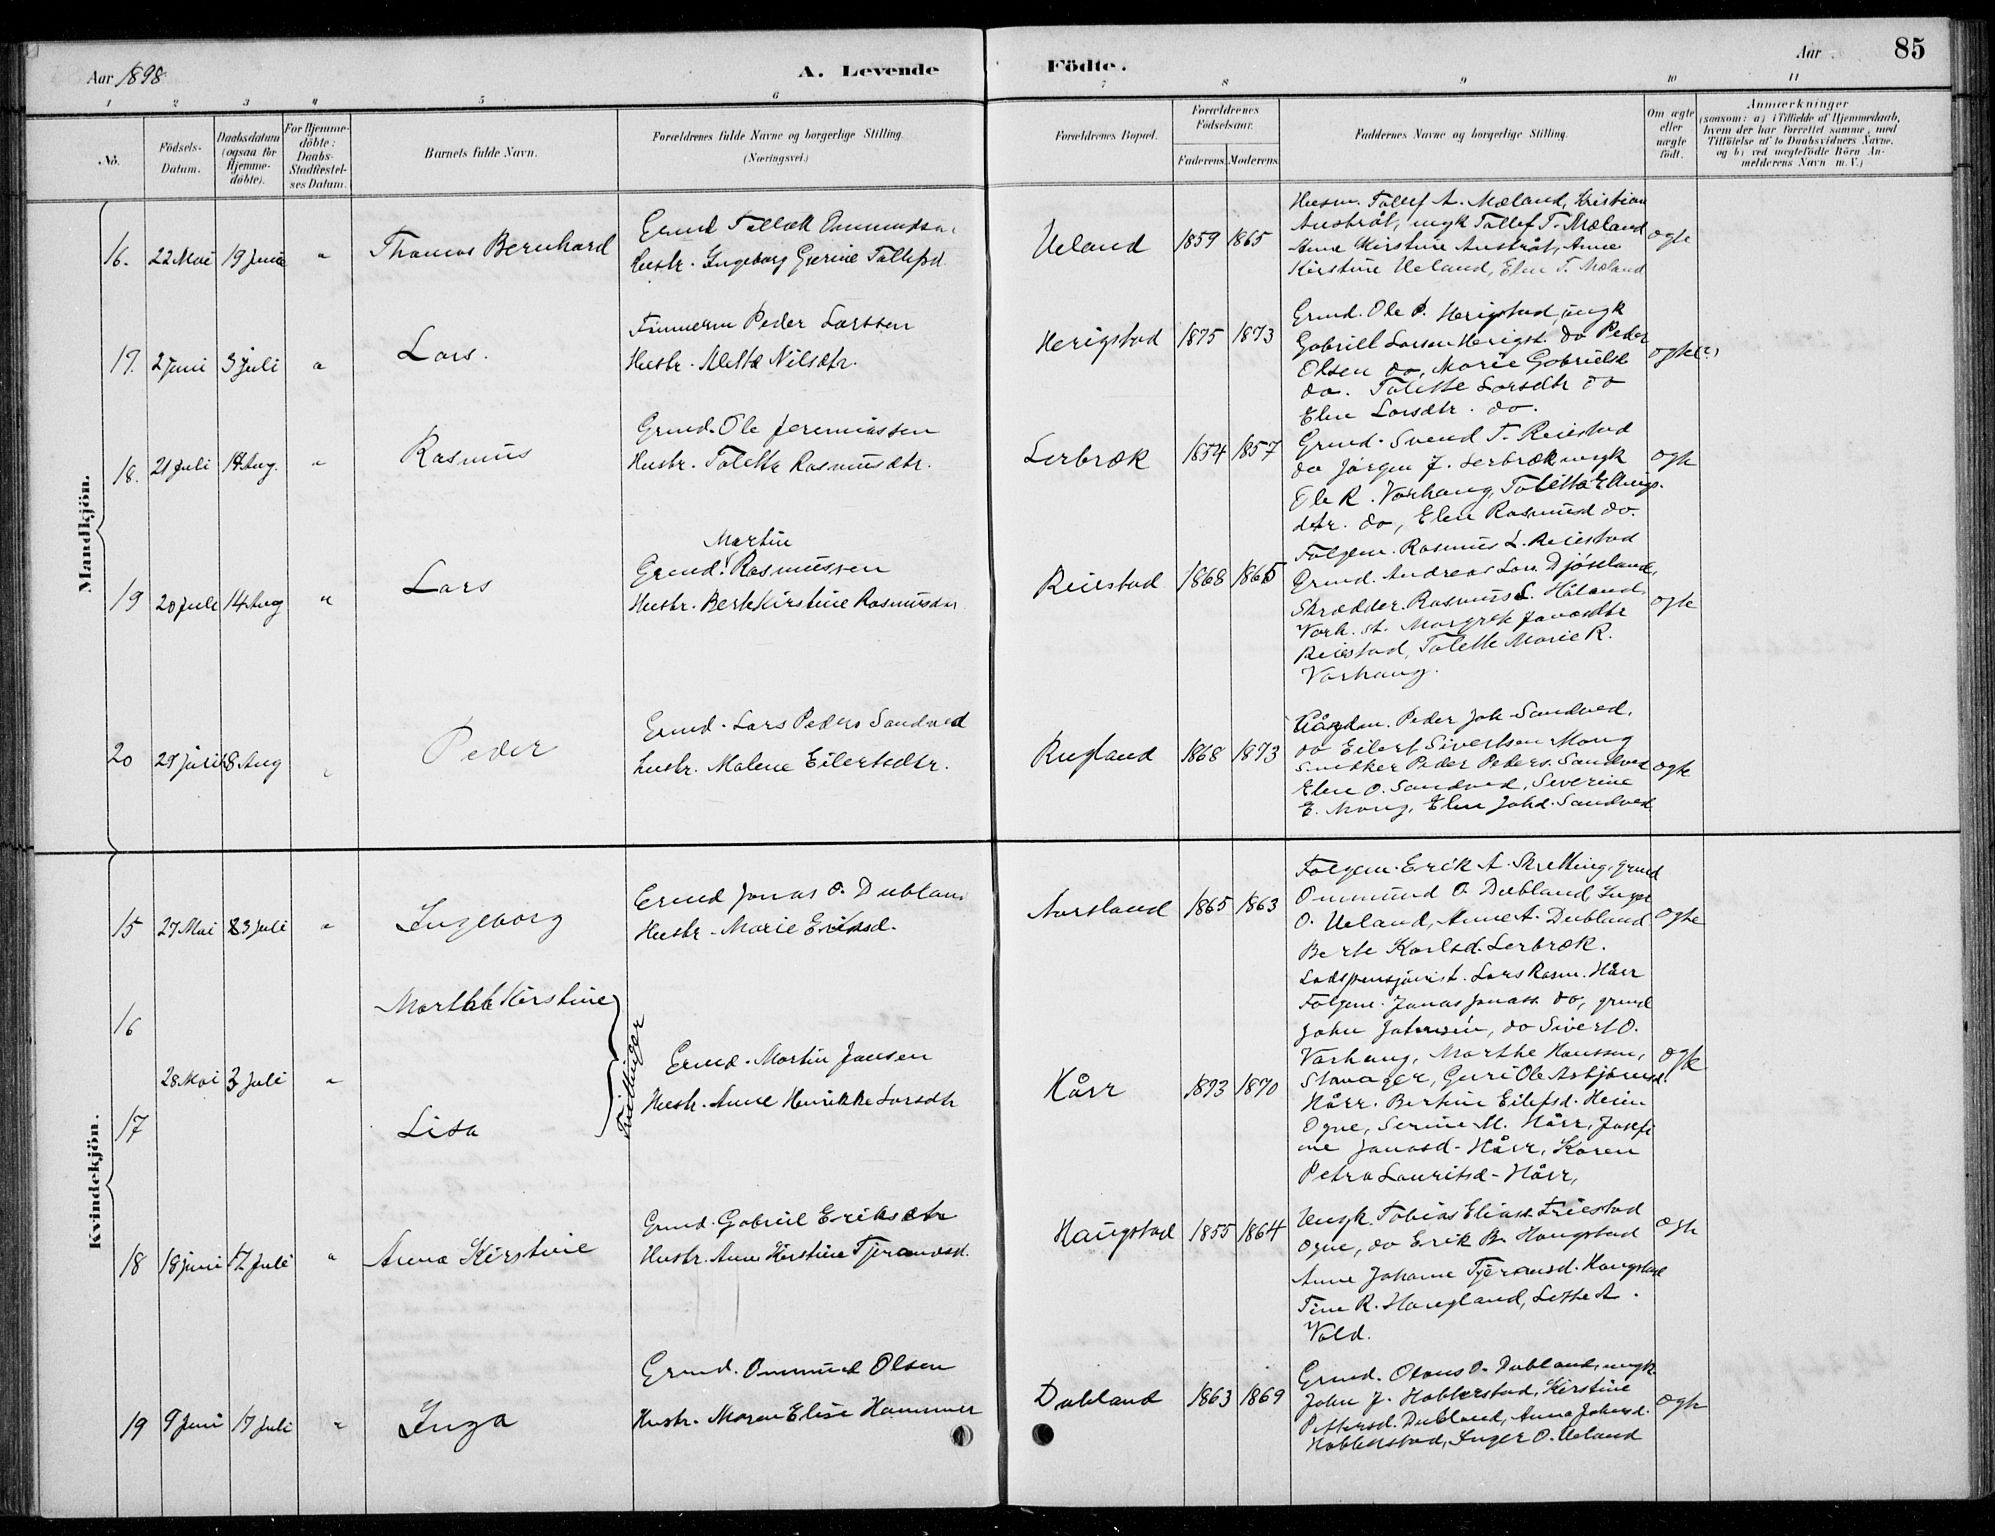 Aar 1898
A. Levende
Födte.
Aar
85
1 2 3 4 5 6 7 8 9 10 11
No.
Födsels-
Datum.
Daabsdatum
(ogsaa for
Hjemme-
döbte).
For Hjemme-
döbte:
Daabs-
Stadfæstel-
ses Datum.
Barnets fulde Navn.
Forældrenes fulde Navne og borgerlige Stilling.
(Næringsvei.)
Forældrenes Bopæl.
Forældrenes
Födselsaar.
Faderens. Moderens.
Faddernes Navne og borgerlige Stilling.
Om ægte
eller
uægte
født.
Anmærkninger
(saasom: a) i Tilfælde af Hjemmedaab,
hvem der har forrettet samme, med
Tilföielse af to Daabsvidners Navne,
og b) ved uægtefödte Börn An-
melderens Navn m. V.)
Mandkjön.
16. 22 Mai 19 Juni " Thomas Bernhard
Grmd Tallak Ommundsen
Hustr. Ingeborg Gurine Tollefsd.
Ueland 1859 1865
Husm. Tollef A. Mæland, Kristian
Austråt, ungk Tollef T. Mæland
Anne Kirstine Austråt, Anne
Kirstine Ueland, Elen T. Mæland
ægte
17. 2 Juni 3 Juli " Lars.
Tømmerm Peder Larssen
Hustr. Aletta Nilsdtr.
Herigstad 1875 1873
Grmd. Ole P. Herigstad, ungk
Gabriel Larsen Herigst. do Peder
Olsen do, Marie Gabrielsd
do. Tolette Larsdtr do
Elen Larsdtr. do.
ægte
18. 21 Juli 14 Aug. " Rasmus
Grmd. Ole Jeremiassen
Hustr. Tolette Rasmusdtr.
Lerbræk 1854 1857
Grmd. Svend T. Reiestad
do Jørgen J. Lerbræk ungk
Ole R. Varhaug, Tolette Ellings-
dtr. do, Elen Rasmusd do.
ægte
19 20 Juli 14 Aug " Lars
Martin
Grmd. Rasmussen
Hustr. Berte Kirstine Rasmusdtr
Reiestad 1868 1865
Følgem. Rasmus L. Reiestad
Grmd. Andreas Lars. Djøseland,
Skrædder. Rasmus L. Håland,
Varh. st. Margrete Jonasdtr
Reiestad, Tolette Marie R.
Varhaug.
ægte
20 29 Juli 28 Aug " Peder
Grmd. Lars Peders Sandved
Hustr. Malene Eilertsdtr.
Rugland 1868 1873
Gårdm. Peder Joh. Sandved,
do Eilert Sivertsen Mong
Snedker Peder Peders. Sandved
Elen O. Sandved, Severine
E. Mong, Elen Johd. Sandved
ægte
Kvindekjön.
15 27 Mai 3 Juli " Ingeborg
Grmd Jonas O. Dubland
Hustr. Marie Eriksd.
Aarsland 1865 1863
Følgem. Erik A. Skretting, grmd
Ommund O. Dubland, Inger
O. Ueland, Anne A. Dubland
Berte Karlsd. Lerbræk.
ægte
16 Martha Kirstine
17 Lisa
Tvillinger
28 Mai 3 Juli "
Grmd. Martin Jansen
Hustr. Anne Henrikke Larsdtr
Hårr 1873 1870
Lodspensjonist. Lars Rasm. Hårr
Følgem. Jonas Jonass. do, grmd
John Johnsen, do Sivert O.
Varhaug, Marthe Hanssen,
Stavager, Guri Ole Asbjørnsd.
Hårr. Bertine Eilefsd. Heim
Ogne, Serine M. Hårr, Josefi
ne Jonasd. Hårr, Karen
Petra Lauritsd. Hårr,
ægte
18 18 Juni 17 Juli " Anna Kirstine
Grmd. Gabriel Eriksen
Hustr. Anne Kirstine Tjeransd.
Haugstad 1855 1864
Ungk. Tobias Eliass. Friestad
Ogne, do Erik B. Haugstad
Anne Johanne Tjeransd. Haugstad
Tine R. Haugland, Lette A.
Vold.
ægte
19 9 Juni 17 Juli " Inga
Grmd. Ommund Olsen
Hustr. Maren Elise Hammer
Dubland 1863 1869
Grmd. Otaus O. Dubland, ungk.
John J. Hobberstad, Kirstine
Pettersd. Dubland, Anna Johnsd.
Hobberstad, Inger O. Ueland
ægte